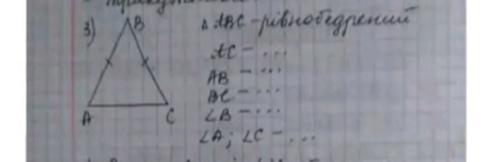 3) B Δ ABC - рівнобедрений
AC - ...
AB - ...
BC - ...
∠B - ...
A C ∠A; ∠C - ...